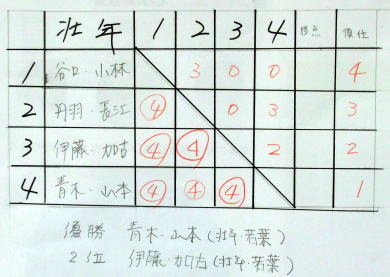 壮年 1 2 3 4 得点 順位
1 谷口・小林 3 0 0 4
2 丹羽・長江 4 0 3 3
3 伊藤・加古 4 4 2 2
4 青木・山本 4 4 4 1
優勝 青木・山本(壮年・若葉)
2位 伊藤・加古(壮年・若葉)